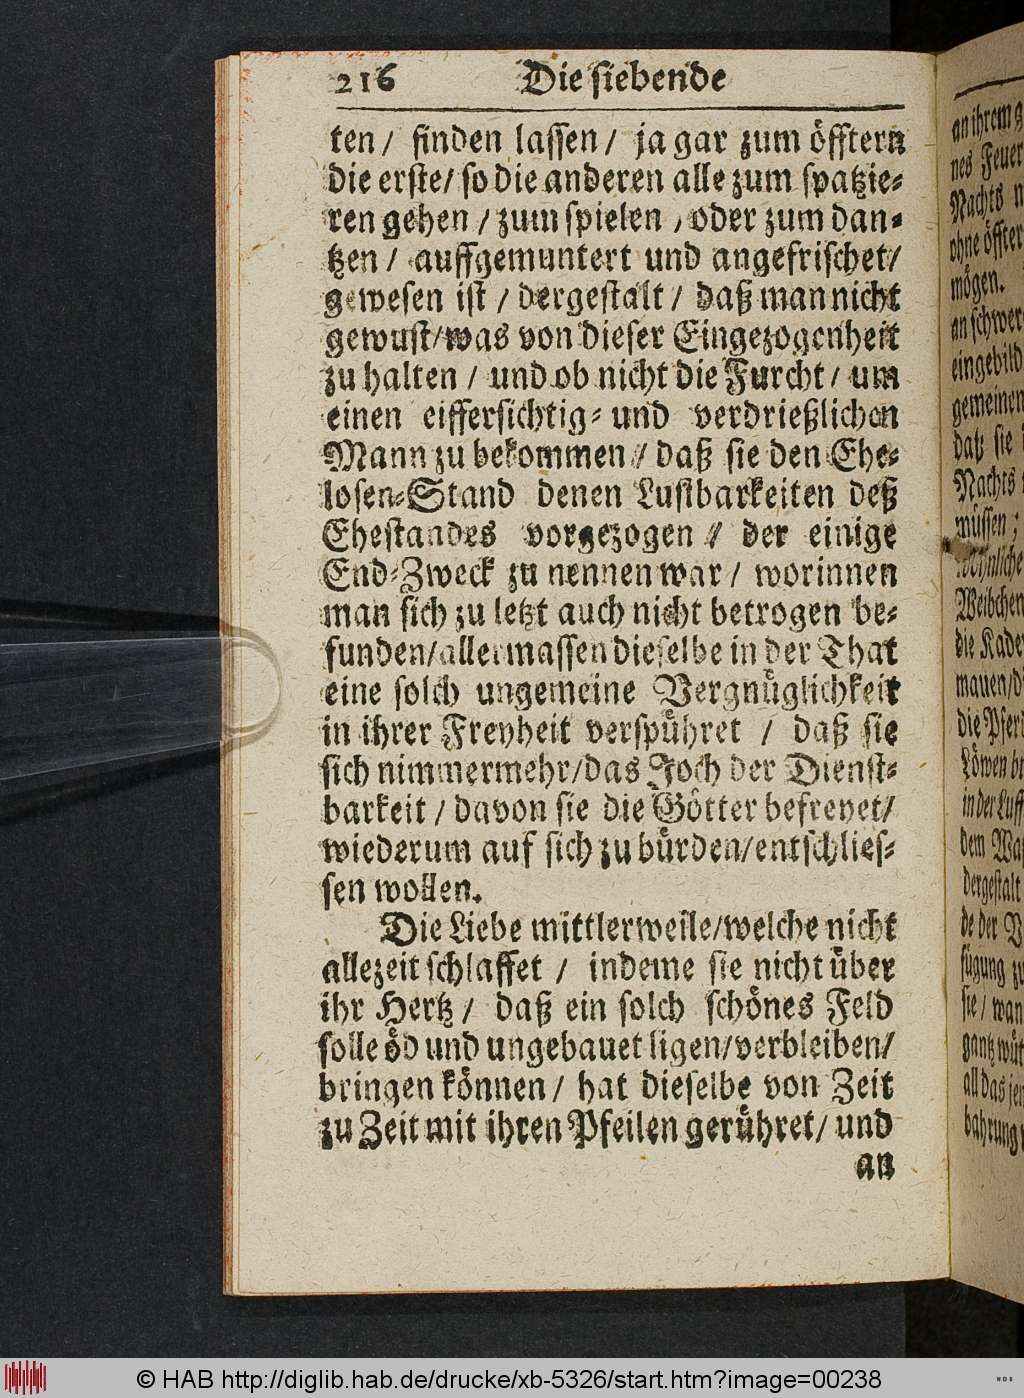 216 Die siebende
ten / finden lassen / ja gar zum öfftern
die erste / so die anderen alle zum spatzie-
ren gehen / zum spielen / oder zum dan-
tzen / auffgemuntert und angefrischet /
gewesen ist / dergestalt / daß man nicht
gewust / was von dieser Eingezogenheit
zu halten / und ob nicht die Furcht / um
einen eiffersichtig- und verdrießlichen
Mann zu bekommen / daß sie den Ehe-
losen-Stand denen Lustbarkeiten deß
Ehestandes vorgezogen / der einige
End-Zweck zu nennen war / worinnen
man sich zu letzt auch nicht betrogen be-
funden / allermassen dieselbe in der That
eine solch ungemeine Vergnüglichkeit
in ihrer Freyheit verspühret / daß sie
sich nimmermehr / das Joch der Dienst-
barkeit / davon sie die Götter befreyet /
wiederum auf sich zu bürden / entschlies-
sen wollen.
Die Liebe mittlerweile / welche nicht
allezeit schlaffet / indeme sie nicht über
ihr Hertz / daß ein solch schönes Feld
solle öd und ungebauet ligen / verbleiben /
bringen können / hat dieselbe von Zeit
zu Zeit mit ihren Pfeilen gerühret / und
an
an ihrem
nes Feuer
Nachts
ohne öffter
mögen.
an schwer
eingebild
gemeinen
daß sie
Nachts
müssen;
Weibchen
die
mauen / d
die Pferd
Löwen
in der Lufft
dem
dergestalt
de der
fügung
sie / wan
gantz
all das
bahrung
© HAB http://diglib.hab.de/drucke/xb-5326/start.htm?image=00238